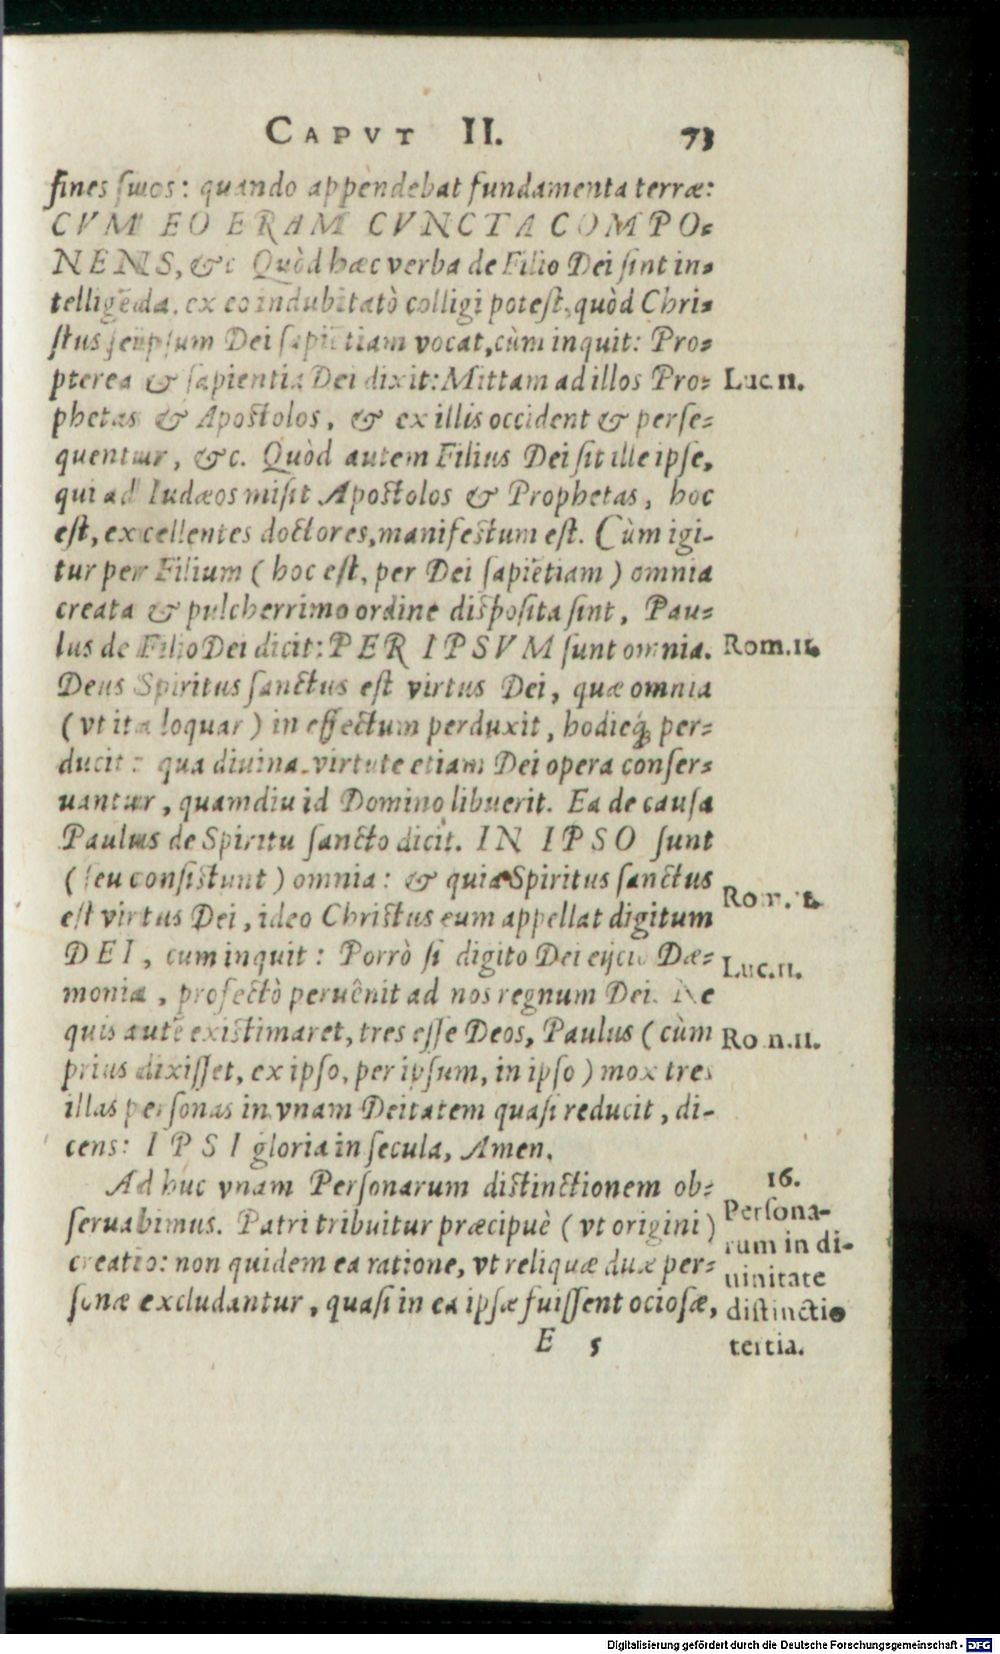 CAPVT II. 73
fines suos: quando appendebat fundamenta terræ:
CVM EO ERAM CVNCTA COMPO-
NENS, &c Quòd hæc verba de Filio Dei sint in-
telligēda, ex eo indubitatò colligi potest, quòd Chri-
stus seipsum Dei sapiētiam vocat, cùm inquit: Pro-
pterea & sapientia Dei dixit: Mittam ad illos Pro- Luc.11.
phetas & Apostolos, & ex illis occident & perse-
quentur, &c. Quòd autem Filius Dei sit ille ipse,
qui ad Iudæos misit Apostolos & Prophetas, hoc
est, excellentes doctores, manifestum est. Cùm igi-
tur per Filium (hoc est, per Dei sapiētiam) omnia
creata & pulcherrimo ordine disposita sint, Pau-
lus de Filio Dei dicit: PER IPSVM sunt omnia. Rom.11.
Deus Spiritus sanctus est virtus Dei, quæ omnia
(vt ita loquar) in effectum perduxit, hodieq́; per-
ducit: qua diuina virtute etiam Dei opera conser-
uantur, quamdiu id Domino libuerit. Ea de causa
Paulus de Spiritu sancto dicit. IN IPSO sunt
(seu consistunt) omnia: & quia Spiritus sanctus
est virtus Dei, ideo Christus eum appellat digitum Rom.
DEI, cum inquit: Porrò si digito Dei eijcio Dæ- Luc.11.
monia, profectò peruênit ad nos regnum Dei. Ne
quis autē existimaret, tres esse Deos, Paulus (cùm Rom.11.
prius dixisset, ex ipso, per ipsum, in ipso) mox tres
illas personas in vnam Deitatem quasi reducit, di-
cens: IPSI gloria in secula, Amen.
Ad huc vnam Personarum distinctionem ob-
seruabimus. Patri tribuitur præcipuè (vt origini)
creatio: non quidem ea ratione, vt reliquæ duæ per-
sonæ excludantur, quasi in ea ipsæ fuissent ociosæ,
16.
Persona-
rum in di-
uinitate
distinctio
tertia.
E 5
Digitalisierung gefördert durch die Deutsche Forschungsgemeinschaft - DFG